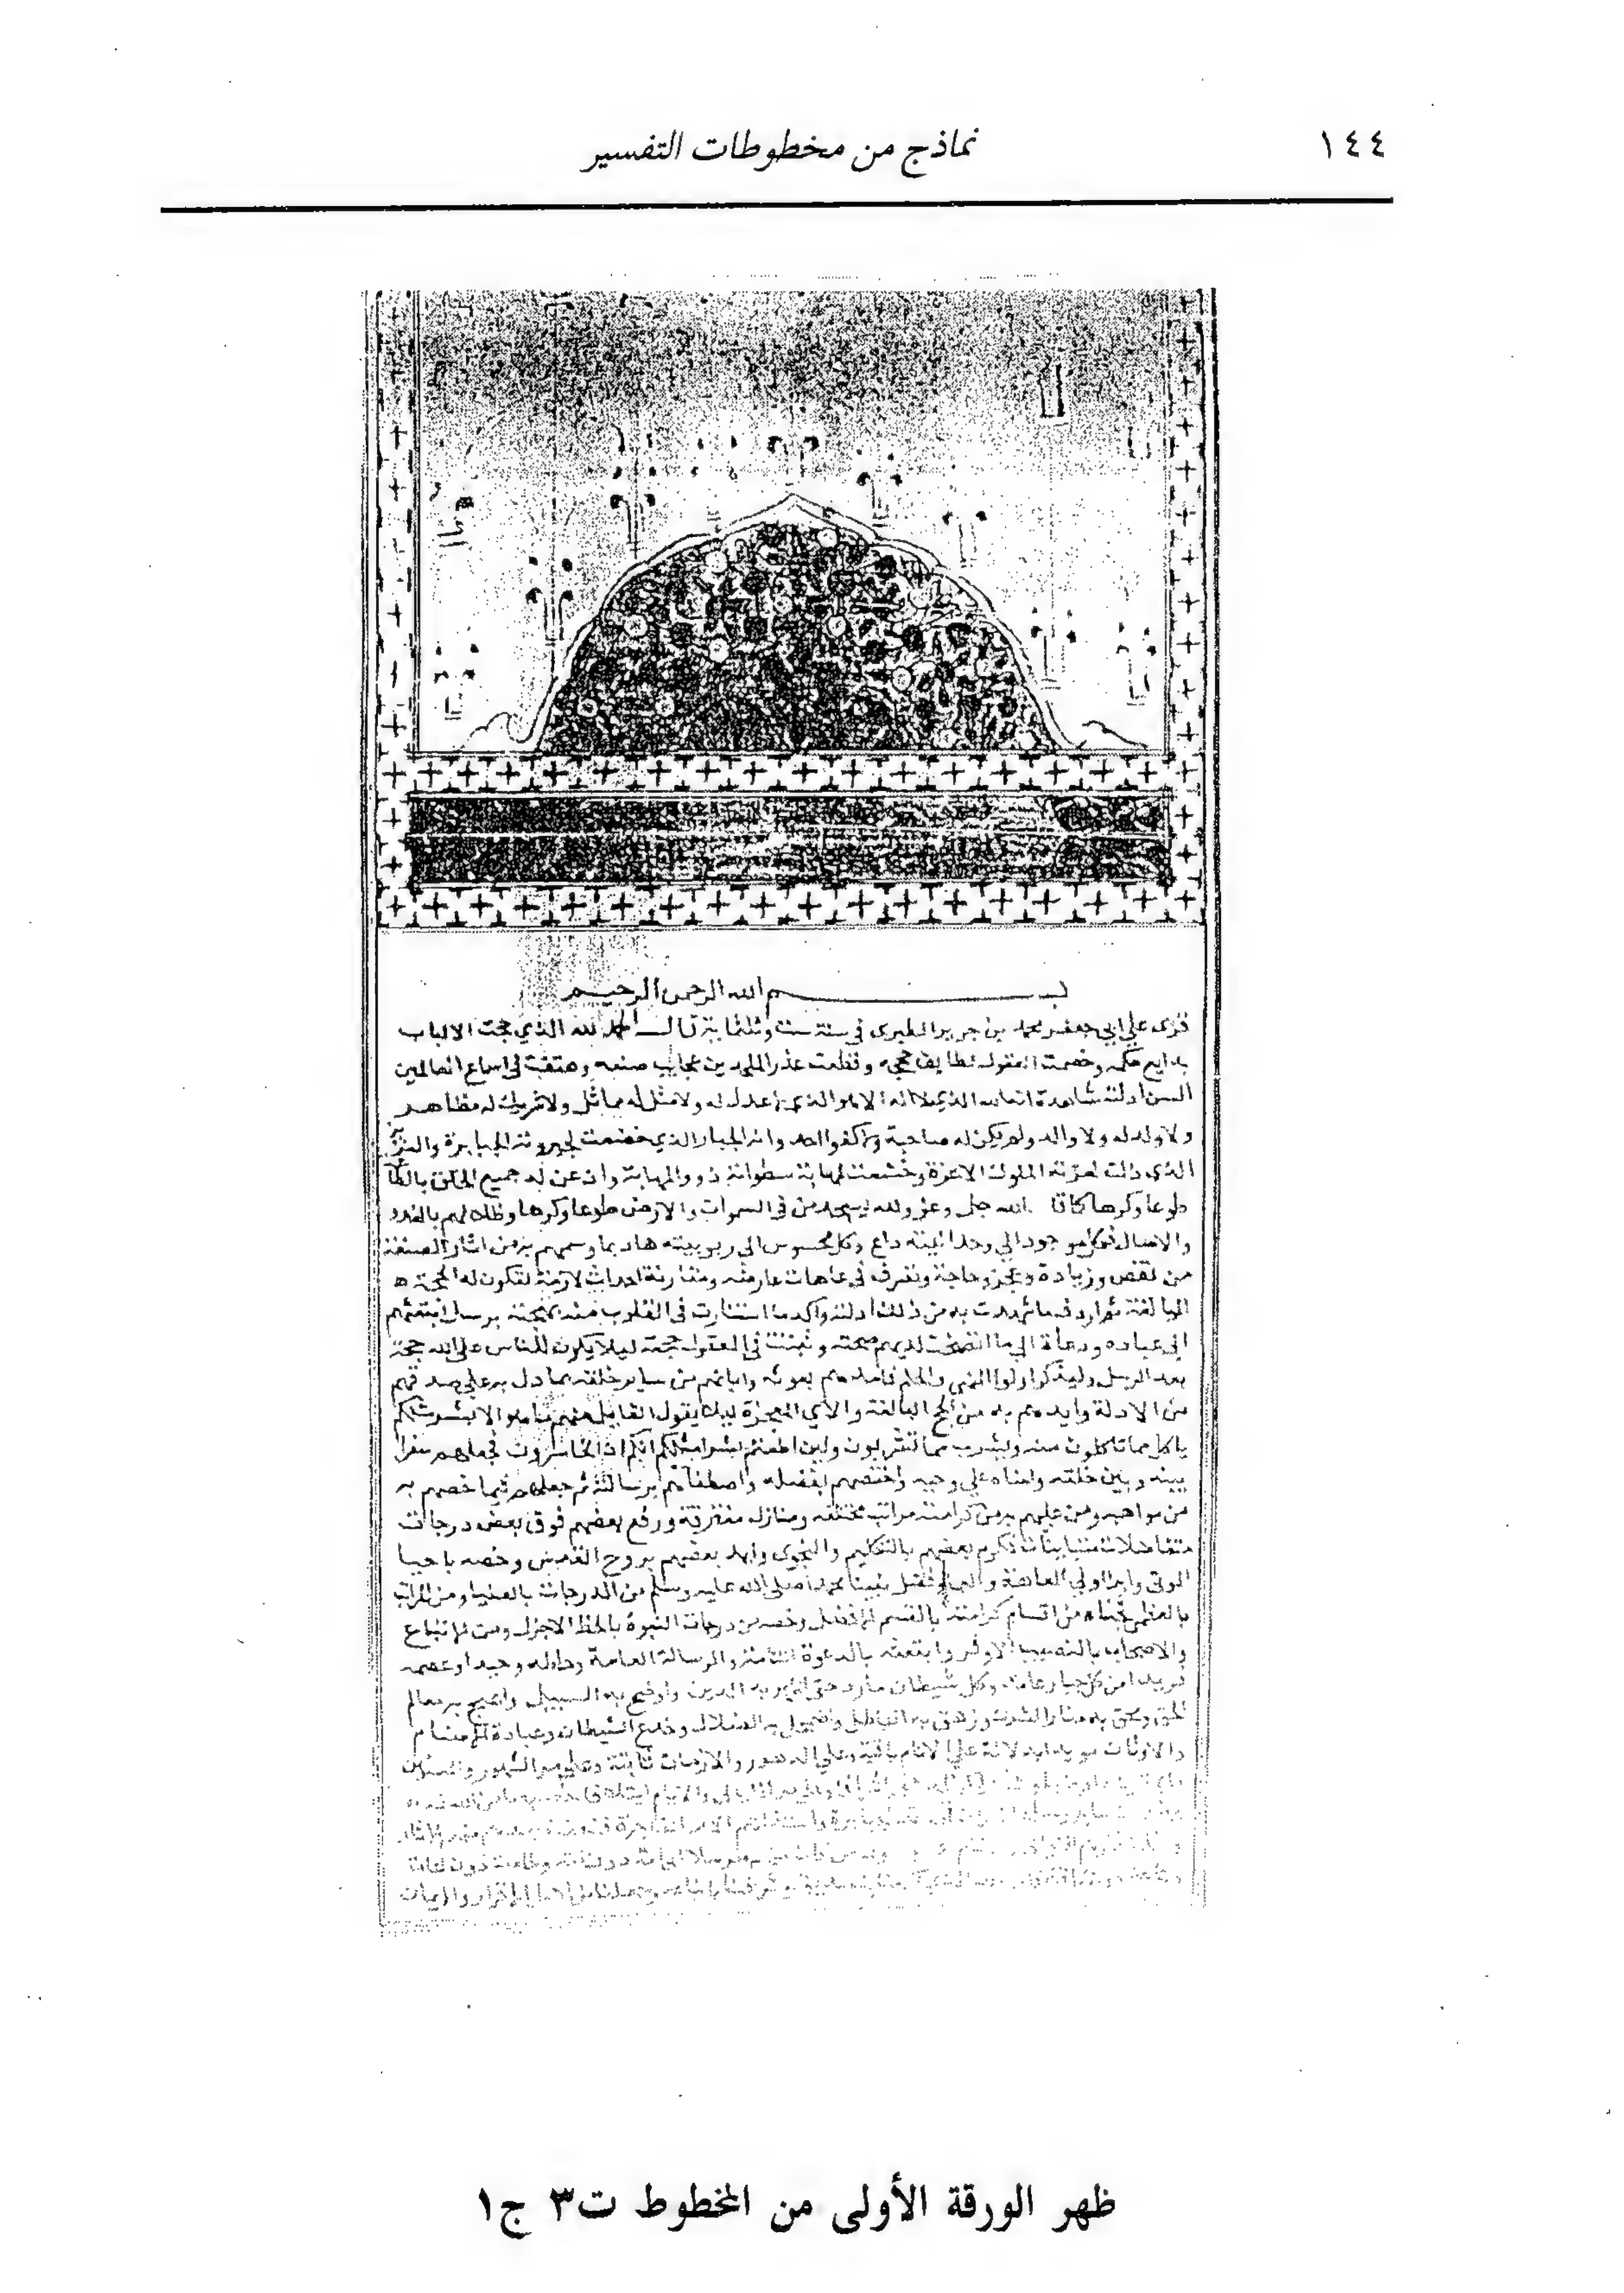 ١٤٤
نماذج من مخطوطات التفسير
بسم الله الرحمن الرحيم
قرى علي ابي جعفر محمد بن جرير الطبرى في سنة ست وثلثماية قال الحمد لله الذي حجت الالباب
بدايع حكمه وخصمت العقول لطايف حججه وقطعت عذر الملحدين عجايب صنعه وهتفت في اسماع العالمين
السن ادلته شاهدة انه الله الذي لا اله الا هو الذي لا عدل له ولا مثل له مماثل ولا شريك له مظاهر
ولا ولد له ولا والد ولم يكن له صاحبة ولا كفوا احد وانه الجبار الذي خضعت لجبروته الجبابرة والعزيز
الذي ذلت لعزته الملوك الاعزة وخشعت لمهابة سطوته ذوو المهابة واذعن له جميع الخلق بالطاعة
طوعا وكرها كما قال الله جل وعز ولله يسجد من في السموات والارض طوعا وكرها وظلالهم بالغدو
والاصال فكل موجود الي وحدانيته داع وكل محسوس الى ربوبيته هاد بما وسمهم به من اثار الصنعة
من نقص وزيادة وعجز وحاجة وتصرف في عاهات عارضة ومقارنة احداث لازمة لتكون له الحجة
البالغة ثم اردف ما شهدت به من ذلك ادلته واكد ما استنارت في القلوب منه بهجته برسل ابتعثهم
الي عباده دعاة الي ما اتضحت لديهم صحته وثبتت في العقول حجته ليلا يكون للناس على الله حجة
بعد الرسل وليذكر اولوا النهي والحلم فامدهم بعونه وابانهم من ساير خلقه بما دل به على صدقهم
من الادلة وايدهم به من الحجج البالغة والآي المعجزة ليلا يقول القايل منهم ما هو الا بشر مثلكم
ياكل مما تاكلون منه ويشرب مما تشربون ولين اطعتم بشرا مثلكم انكم اذا لخاسرون فجعلهم سفرا
بينه وبين خلقه وامناه علي وحيه واختصهم بفضله واصطفاهم برسالته ثم جعلهم فيما خصهم به
من مواهبه ومن عليهم به من كرامته مراتب مختلفة ومنازل مفترقة ورفع بعضهم فوق بعض درجات
متفاضلات متباينات فكرم بعضهم بالتكليم والنجوى وايد بعضهم بروح القدس وخصه باحيا
الموتى وابرا اولي العاهة والعمى وفضل نبينا محمدا صلى الله عليه وسلم من الدرجات بالعليا ومن المراتب
بالعظمى فحباه من اقسام كرامته بالقسم الافضل وخصه من درجات النبوة بالحظ الاجزل ومن الاتباع
والاصحاب بالنصيب الاوفر وابتعثه بالدعوة التامة والرسالة العامة وحاطه وحيدا وعصمه
فريدا من كل جبار عاند وكل شيطان مارد حتى اظهر به الدين واوضح به السبيل وانهج به معالم
الحق ومحق به منار الشرك وزهق به الباطل واضمحل به الضلال وخدع الشيطان وعبادة الاصنام
والاوثان مويدا بدلالة علي الايام باقية وعلي الدهور والازمان ثابتة وعلي مر الشهور والسنين
ظهر الورقة الأولى من المخطوط ت٣ ج١